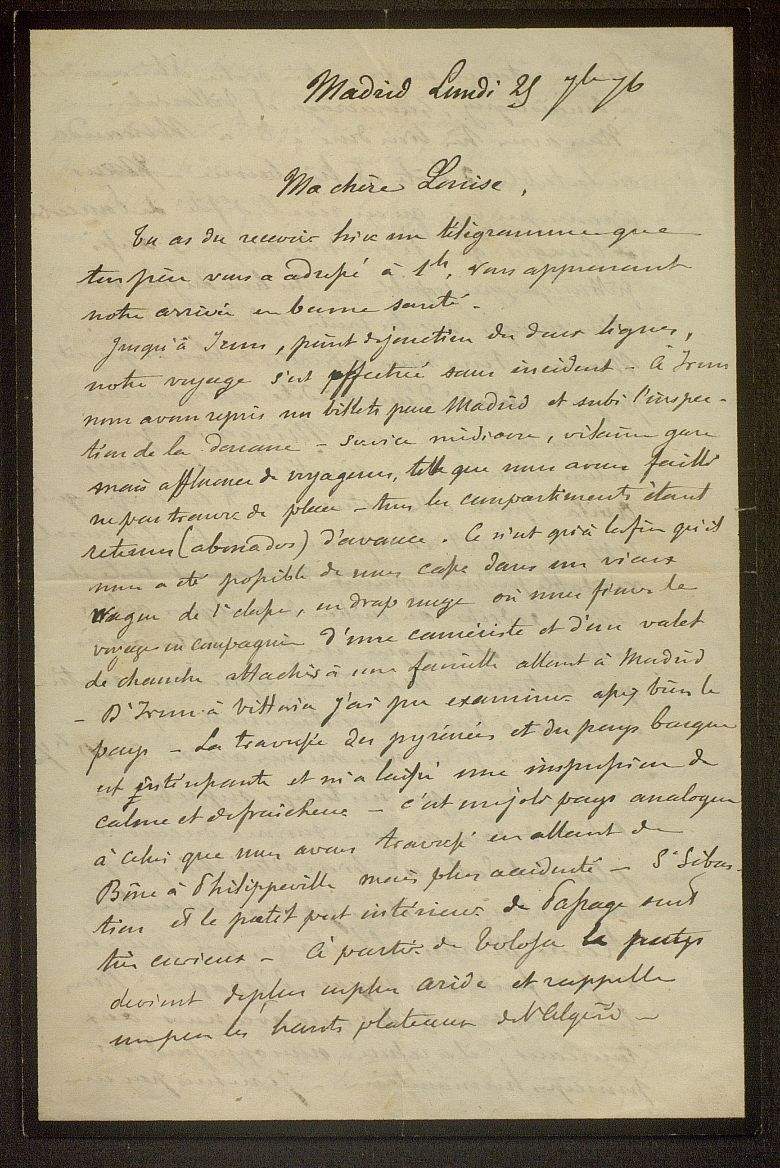 Madrid Lundi 25 7bre 76
Ma chère Louise,
Tu as du recevoir hier un télégramme que
ton père vous a adressé à 1h, vous apprenant
notre arrivée en bonne santé.
Jusqu'à Irun, point de jonction des deux lignes,
notre voyage s'est effectué sans incident – À Irun
nous avons repris nos billets pour Madrid et subi l'inspec-
tion de la douane – Service médiocre, vilaine gare
mais affluence de voyageurs, telle que nous avons failli
ne pas trouver de place – tous les compartiments étant
retenus (abonados) d'avance. Ce n'est qu'à la fin qu'il
nous a été possible de nous caser dans un vieux
wagon de 1e classe, en drap rouge où nous fimes le
voyage en compagnie d'une camériste et d'un valet
de chambre attachés à une famille allant à Madrid
– D'Irun à Vittoria j'ai pu examiner assez bien le
pays – La traversée des pyrénées et du pays basque
est intéressante et m'a laissé une impression de
calme et de fraicheur – c'est un joli pays analogue
à celui que nous avons traversé en allant de
Bône à Philippeville mais plus accidenté – St Sébas-
tien et le petit port intérieur de Passage sont
très curieux – À partir de Tolosa le pays
devient de plus en plus aride et rappelle
un peu les hauts plateaux de l'Algérie –